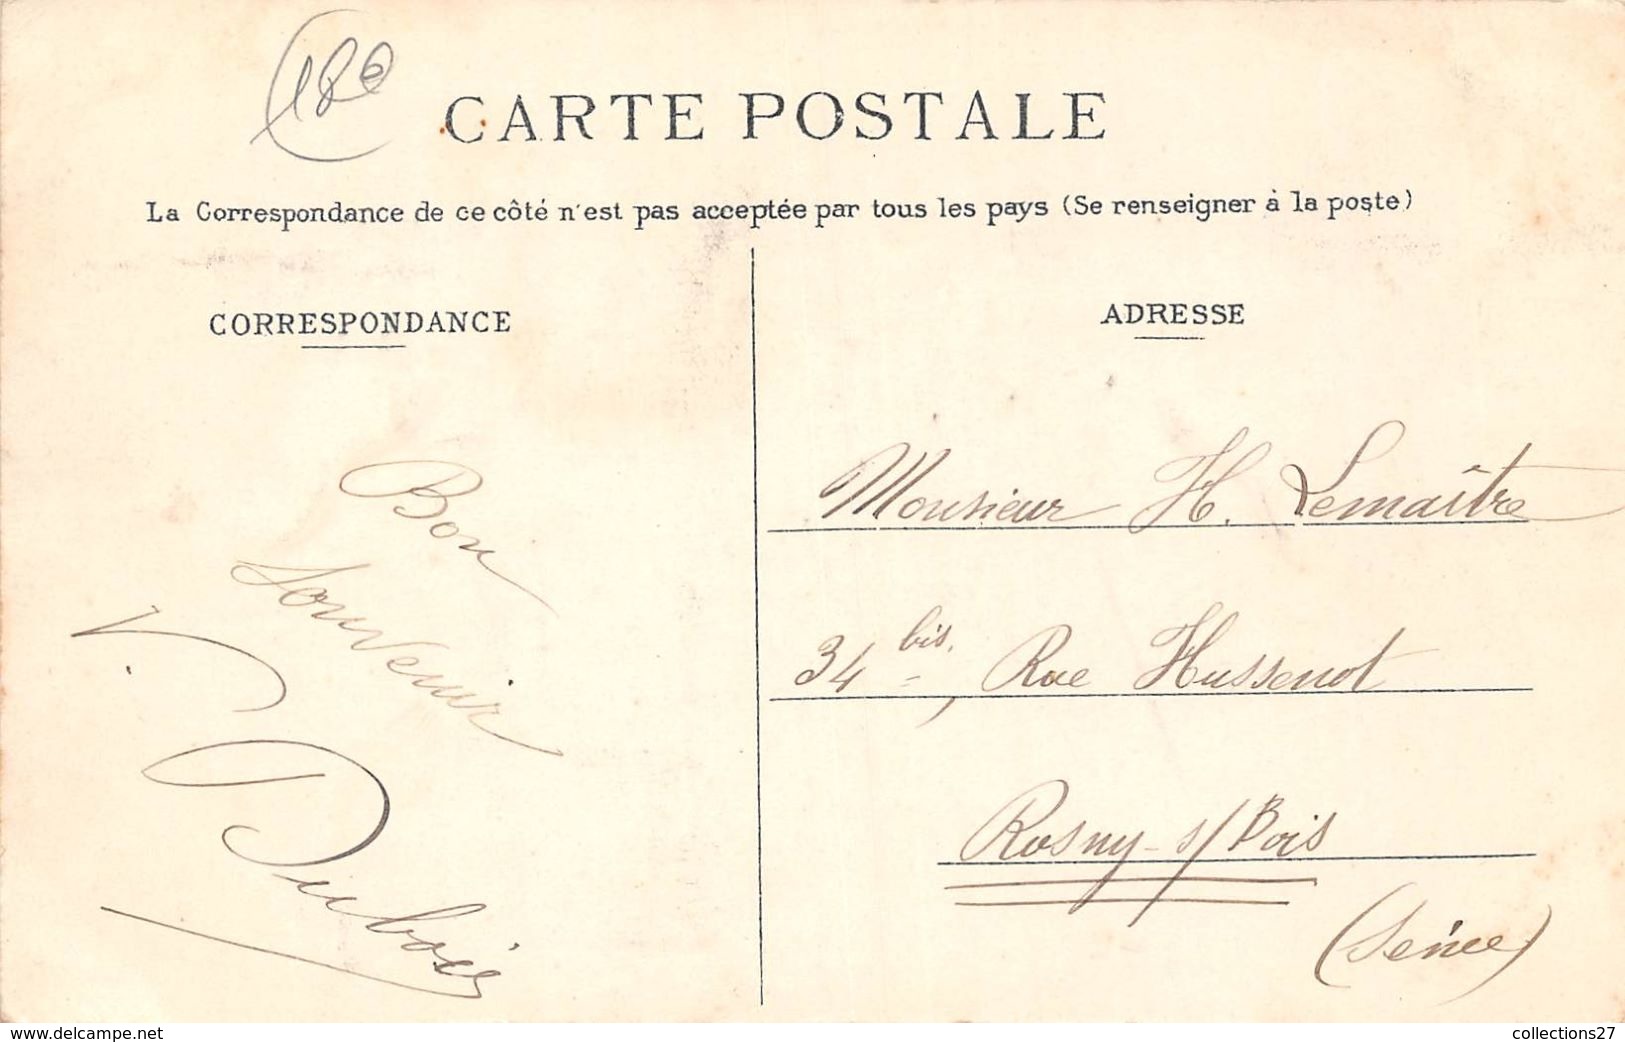 180
CARTE POSTALE
La Correspondance de ce côté n'est pas acceptée par tous les pays (Se renseigner à la poste)
CORRESPONDANCE
Bon
Souvenir
V.
Dubois
ADRESSE
Monsieur H. Lemaître
34 bis, Rue Hussenot
Rosny-s/Bois
(Seine)
www.delcampe.net
collections27